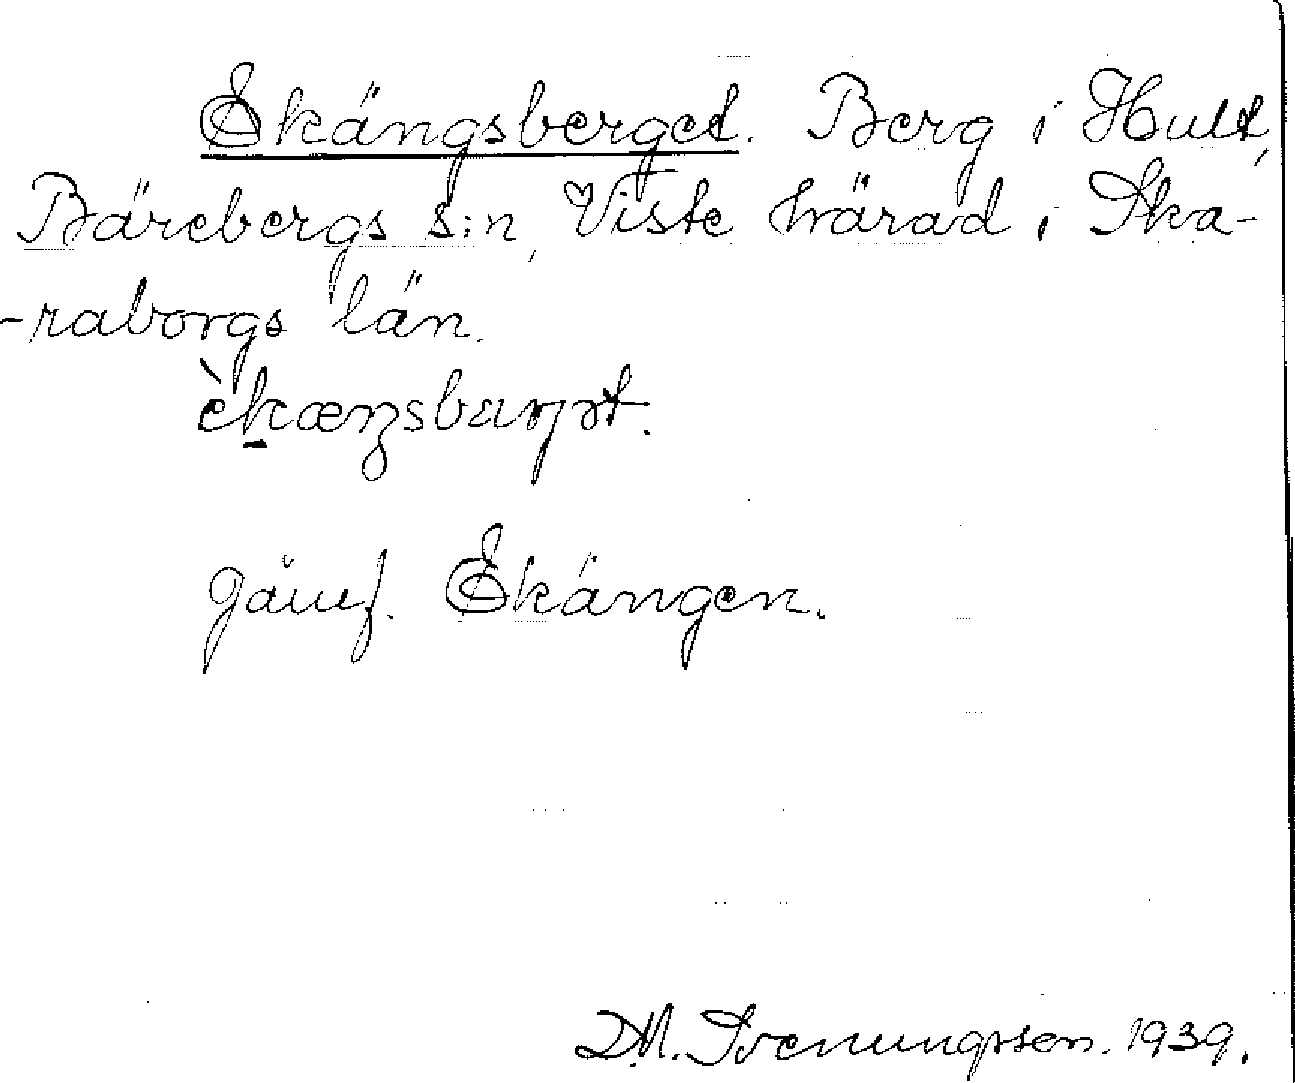 Ekängsberget. Berg i Hult,
Bärebergs s:n, Viste härad i Ska-
-raborgs län.
Jämf. Ekängen.
D.M. Svenungsson. 1939.